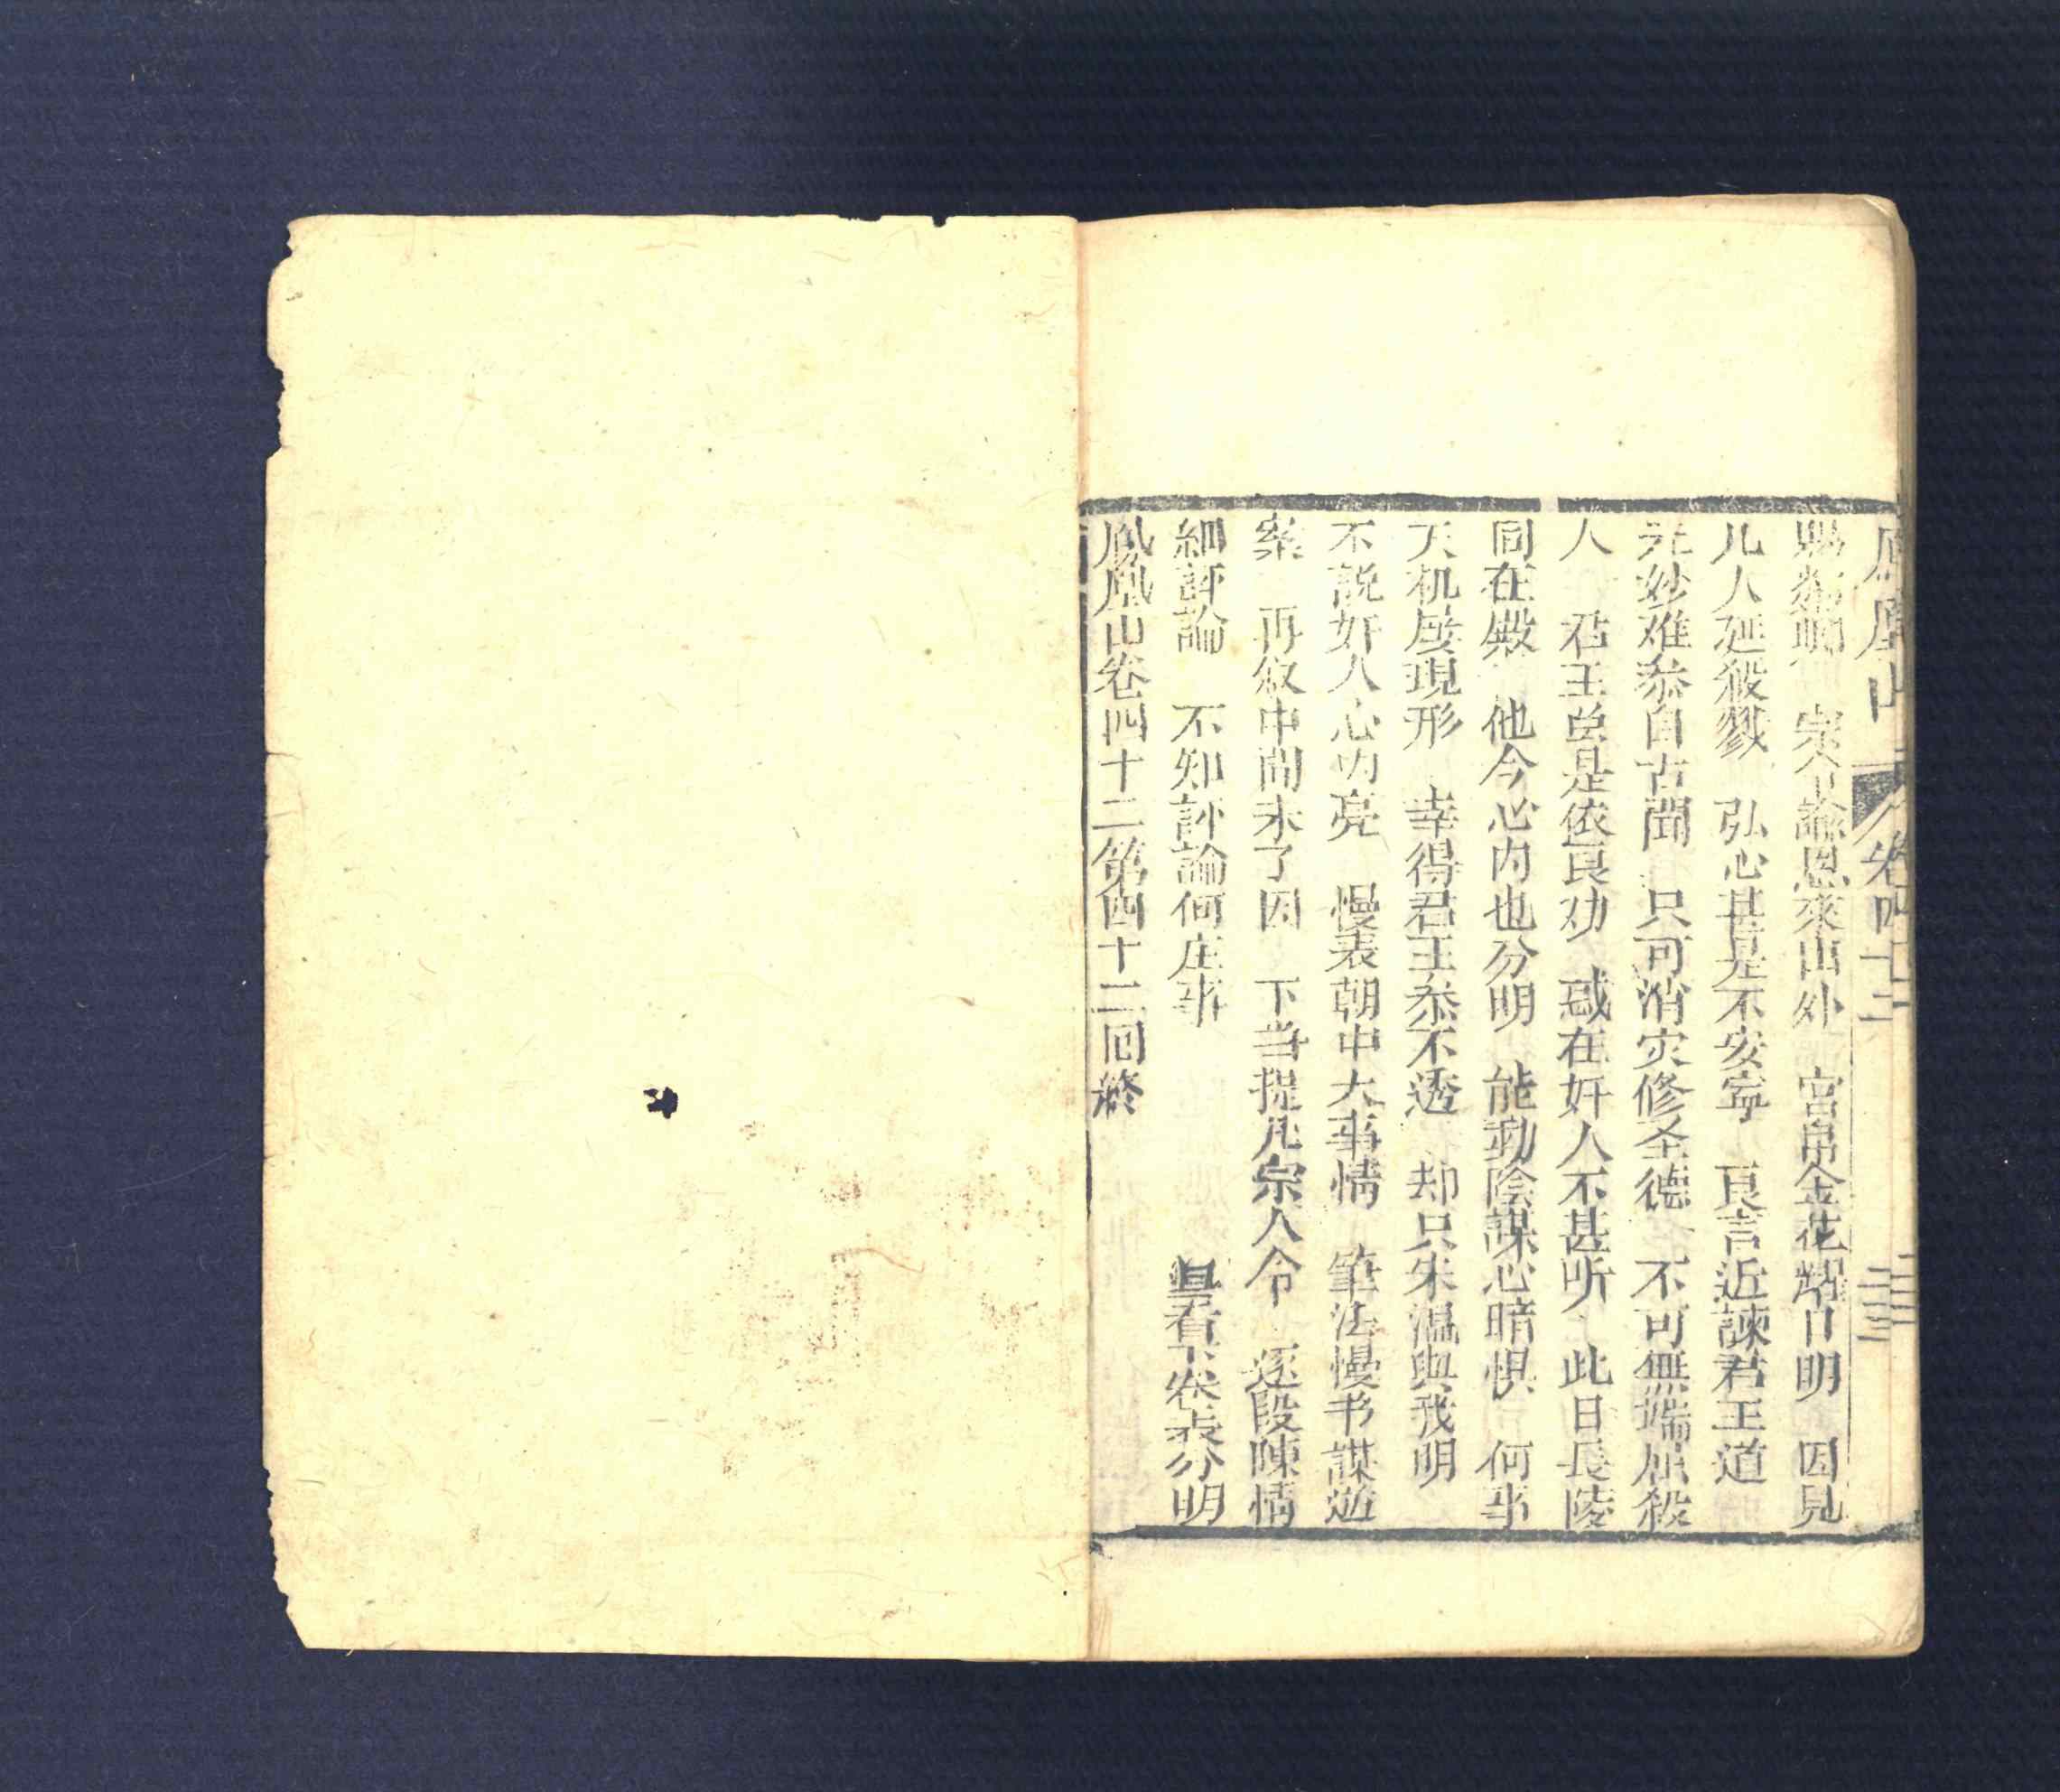 鳳凰山 卷四十二 三三
宗令論恩來山外 宮帛金花耀日明 因見
几人廷殺戮 弘心甚是不安寧 良言近諫君王道
元妙难叅自古聞 只可消灾修圣德 不可無端屈殺
人 君王总是依良劝 惑在奸人不甚听 此日長陵
同在殿 他今心内也分明 能動陰謀心暗惧 何事
天机屡現形 幸得君王叅不透 却只朱溫與我明
不説奸人心内亮 慢表朝中大事情 筆法慢书謀逆
案 再叙中間未了因 下当提凡宗人令 逐段陳情
細評論 不知評論何庄事 且看下卷表分明
鳳凰山卷四十二第四十二回終